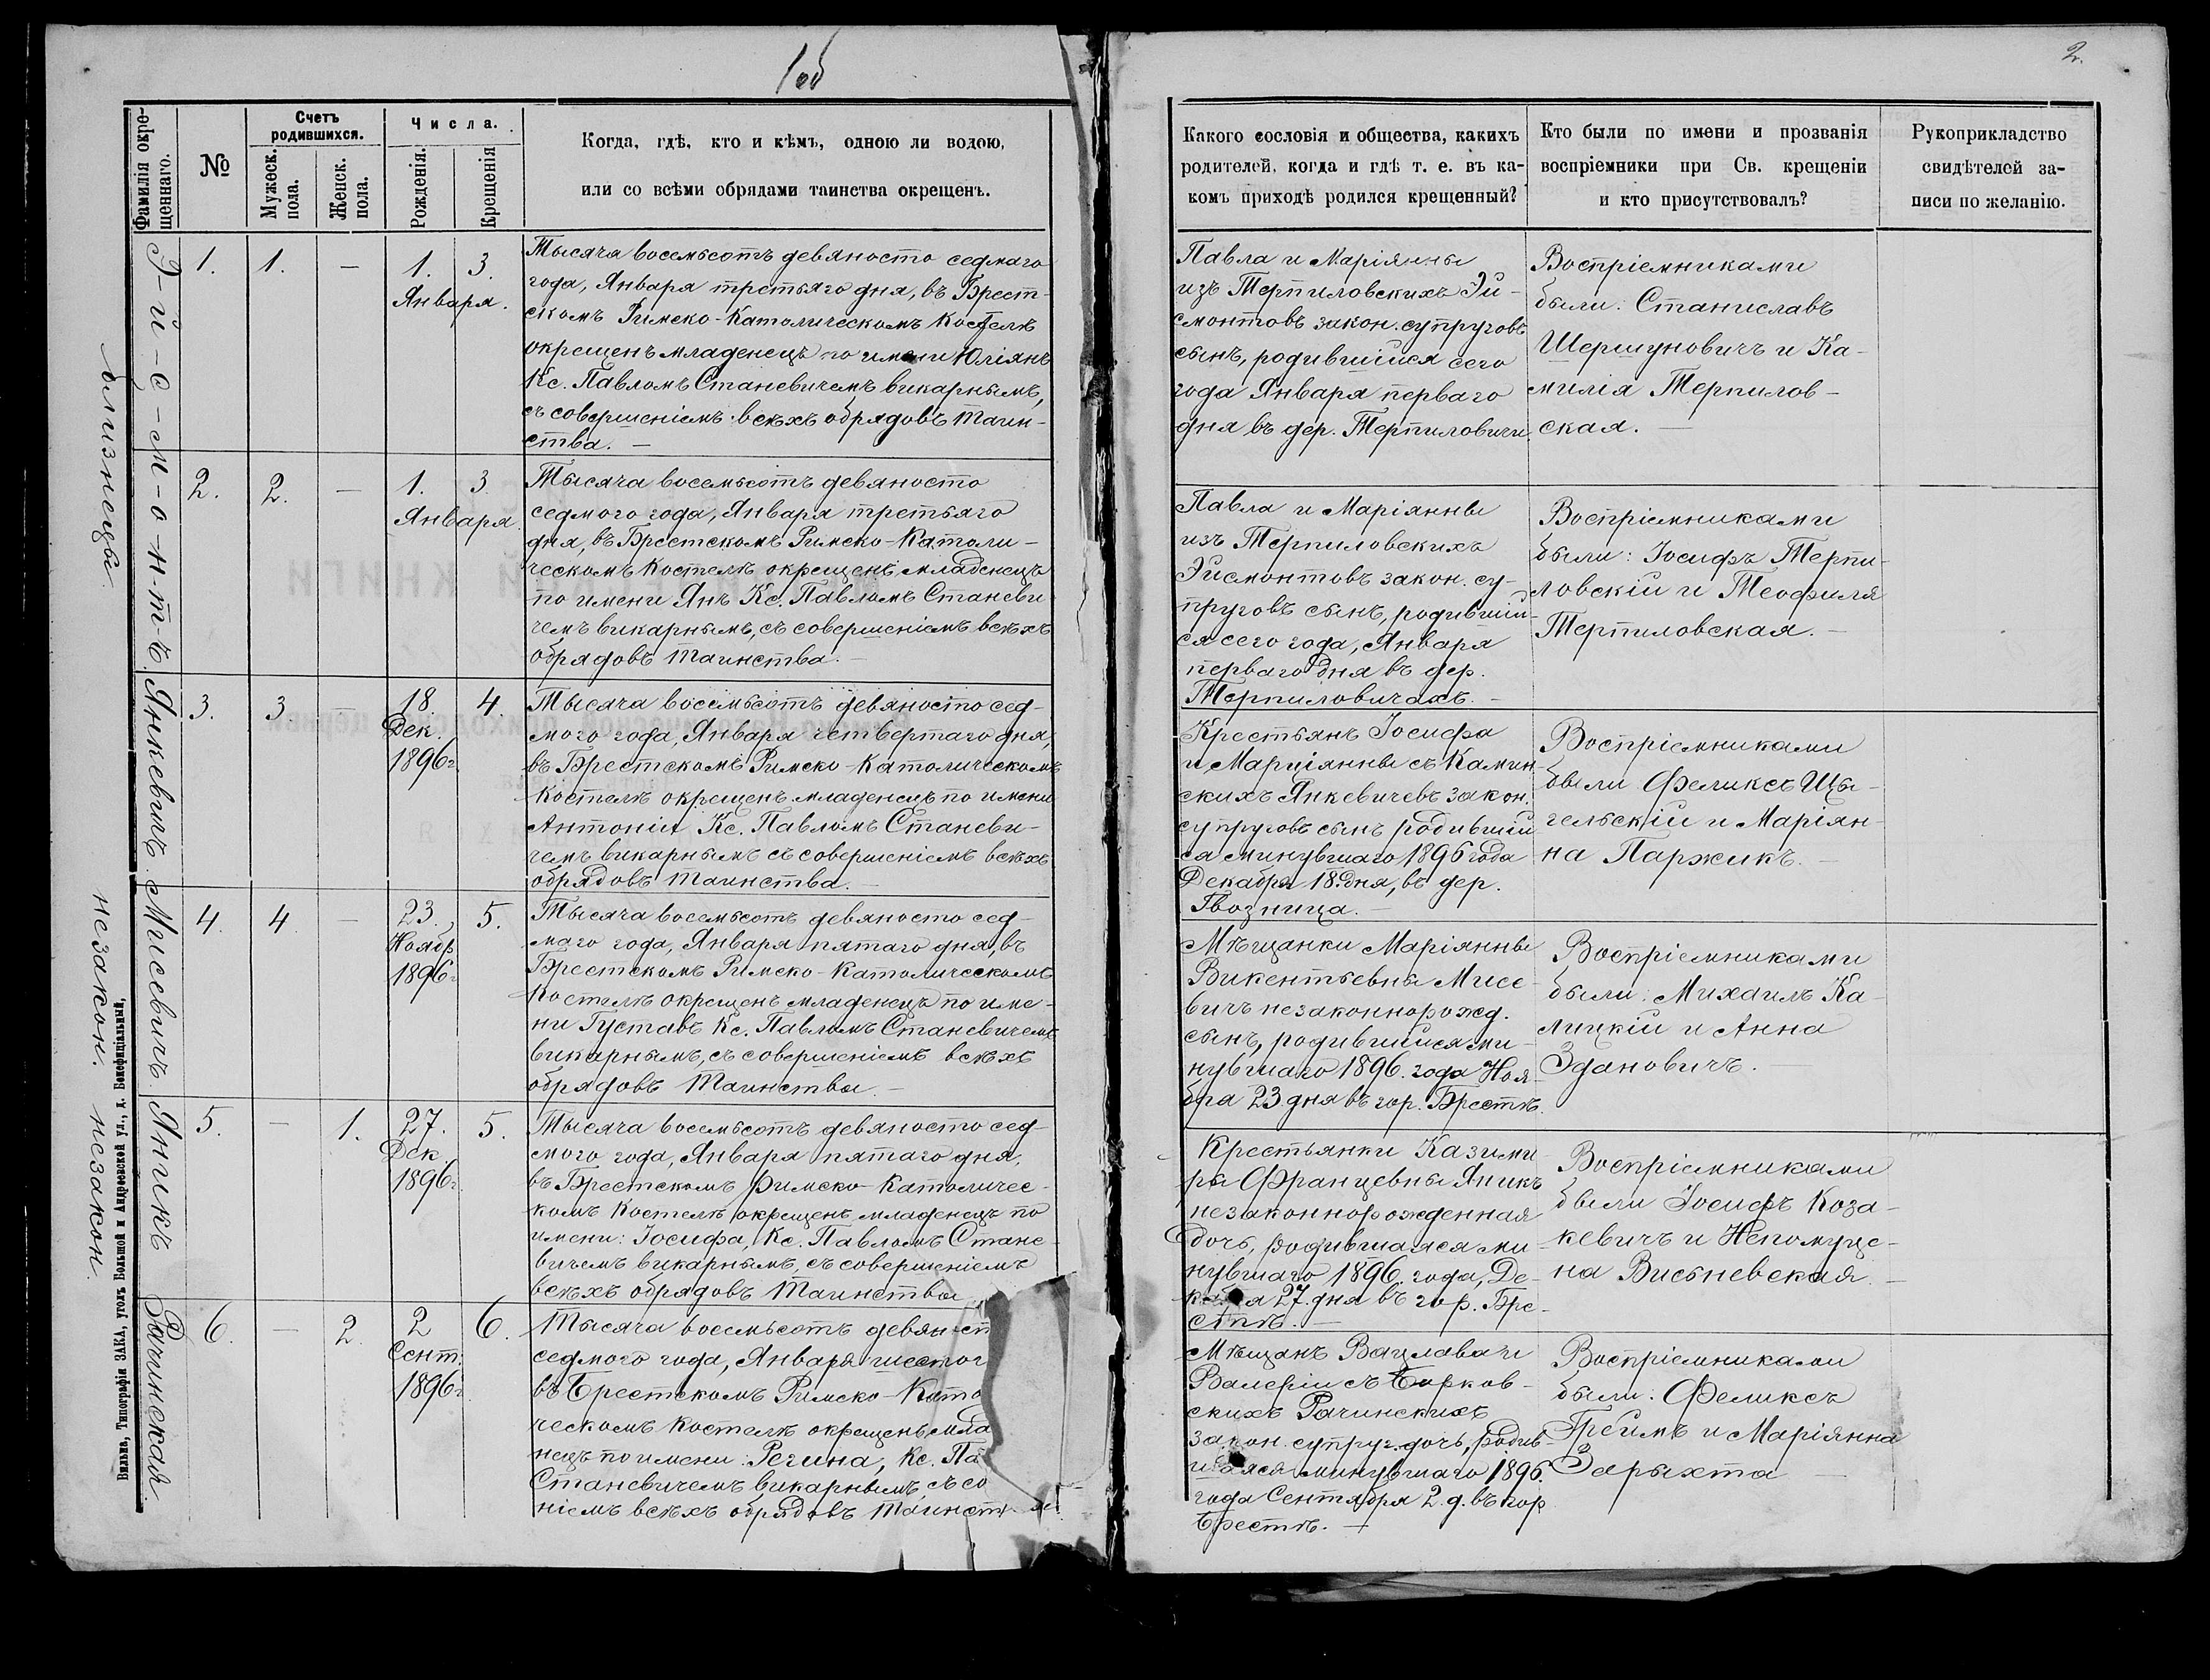 1об
2.
Фамилія окре-
щеннаго.
№
Счетъ
родившихся.
Мужеск.
пола.
Женск.
пола.
Числа.
Рожденія.
Крещенія
Когда, гдѣ, кто и кѣмъ, одною ли водою,
или со всѣми обрядами таинства окрещенъ.
Какого сословія и общества, какихъ
родителей, когда и гдѣ т. е. въ ка-
комъ приходѣ родился крещенный?
Кто были по имени и прозванія
воспріемники при Св. крещеніи
и кто присутствовалъ?
Рукоприкладство
свидѣтелей за-
писи по желанію.
Э-й-с-м-о-н-т-ъ
близнецы
1.
1.
—
1.
Января.
3.
Тысяча восемьсотъ девяносто седмаго
года, Января третьяго дня, въ Брест-
скомъ Римско-Католическомъ Костелѣ
окрещенъ младенецъ по имени Юліянъ
Кс. Павломъ Станевичемъ викарнымъ,
съ совершеніемъ всѣхъ обрядовъ таин-
ства. —
Павла и Маріянны
изъ Терпиловскихъ Эй-
смонтовъ закон. супруговъ
сынъ, родившійся сего
года Января перваго
дня въ дер. Терпиловичи.
Воспріемниками
были: Станиславъ
Шершуновичъ и Ка-
милія Терпилов-
ская. —
2.
2.
—
1.
Января.
3.
Тысяча восемьсотъ девяносто
седмого года, Января третьяго
дня, въ Брестскомъ Римско-Католи-
ческомъ Костелѣ окрещенъ младенецъ
по имени Янъ Кс. Павломъ Станеви
чемъ викарнымъ, съ совершеніемъ всѣхъ
обрядовъ таинства. —
Павла и Маріянны
изъ Терпиловскихъ
Эйсмонтовъ закон. су-
пруговъ сынъ, родившій-
ся сего года, Января
перваго дня въ дер.
Терпиловичахъ. —
Воспріемниками
были: Іосифъ Терпи-
ловскій и Теофиля
Терпиловская. —
Янкевичъ.
3.
3.
—
18.
Дек.
1896г.
4.
Тысяча восемьсотъ девяносто сед-
мого года, Января четвертаго дня,
въ Брестскомъ Римско-Католическомъ
Костелѣ окрещенъ младенецъ по имени
Антоній Кс. Павломъ Станеви-
чемъ викарнымъ съ совершеніемъ всѣхъ
обрядовъ таинства. —
Крестьянъ Іосифа
и Марціянны съ Камин-
скихъ Янкевичевъ закон.
супруговъ сынъ родившій
ся минувшаго 1896 года
Декабря 18. дня, въ дер.
Гвозница.
Воспріемниками
были Феликсъ Цы-
гельскій и Маріян-
на Паржикъ. —
Мисевичъ.
незакон.
4.
4.
—
23.
Ноябр
1896г
5.
Тысяча восемьсотъ девяносто сед-
маго года, Января пятаго дня, въ
Брестскомъ Римско-Католическомъ
Костелѣ окрещенъ младенецъ по име-
ни Густавъ Кс. Павломъ Станевичемъ
викарнымъ, съ совершеніемъ всѣхъ
обрядовъ таинства. —
Мѣщанки Маріянны
Викентьевны Мисе-
вичъ незаконнорожд.
сынъ, родившійся ми-
нувшаго 1896. года Ноя-
бра 23 дня въ гор. Брестѣ.
Воспріемниками
были: Михаилъ Ка-
лицкій и Анна
Здановичъ. —
Яникъ
незакон.
5.
—
1.
27.
Дек.
1896г
5.
Тысяча восемьсотъ девяносто сед-
мого года, Января пятаго дня,
въ Брестскомъ Римско-Католичес-
комъ Костелѣ окрещенъ младенецъ по
имени: Іосифа, Кс. Павломъ Стане-
вичемъ викарнымъ, съ совершеніемъ
всѣхъ обрядовъ таинства
Крестьянки Казими
ры Францевны Яникъ
незаконнорожденная
дочь, родившаяся ми-
нувшаго 1896. года, Де-
кабря 27. дня въ гор. Бре-
стѣ. —
Воспріемниками
были Іосифъ Коза-
кевичъ и Непомуце-
на Висьневская. —
Рачинская.
6.
—
2.
2
Сент.
1896г
6.
Тысяча восемьсотъ девяност
седмого года, Января шестог
въ Брестскомъ Римско-Като
ческомъ Костелѣ окрещенъ мла
нецъ по имени: Регина, Кс. Па
Станевичемъ викарнымъ, съ со
ніемъ всѣхъ обрядовъ таинст
Мѣщанъ Вацлава и
Валеріи съ Борков-
скихъ Рачинскихъ
закон. супруг. дочь, родив-
шаяся минувшаго 1896.
года Сентября 2. д. въ гор
Брестѣ. —
Воспріемниками
были: Феликсъ
Греймъ и Маріянна
Зарыхта —
Вильна, Типографія ЗАКА, уголъ Большой и Андреевской ул., д. Бенефиціальный,